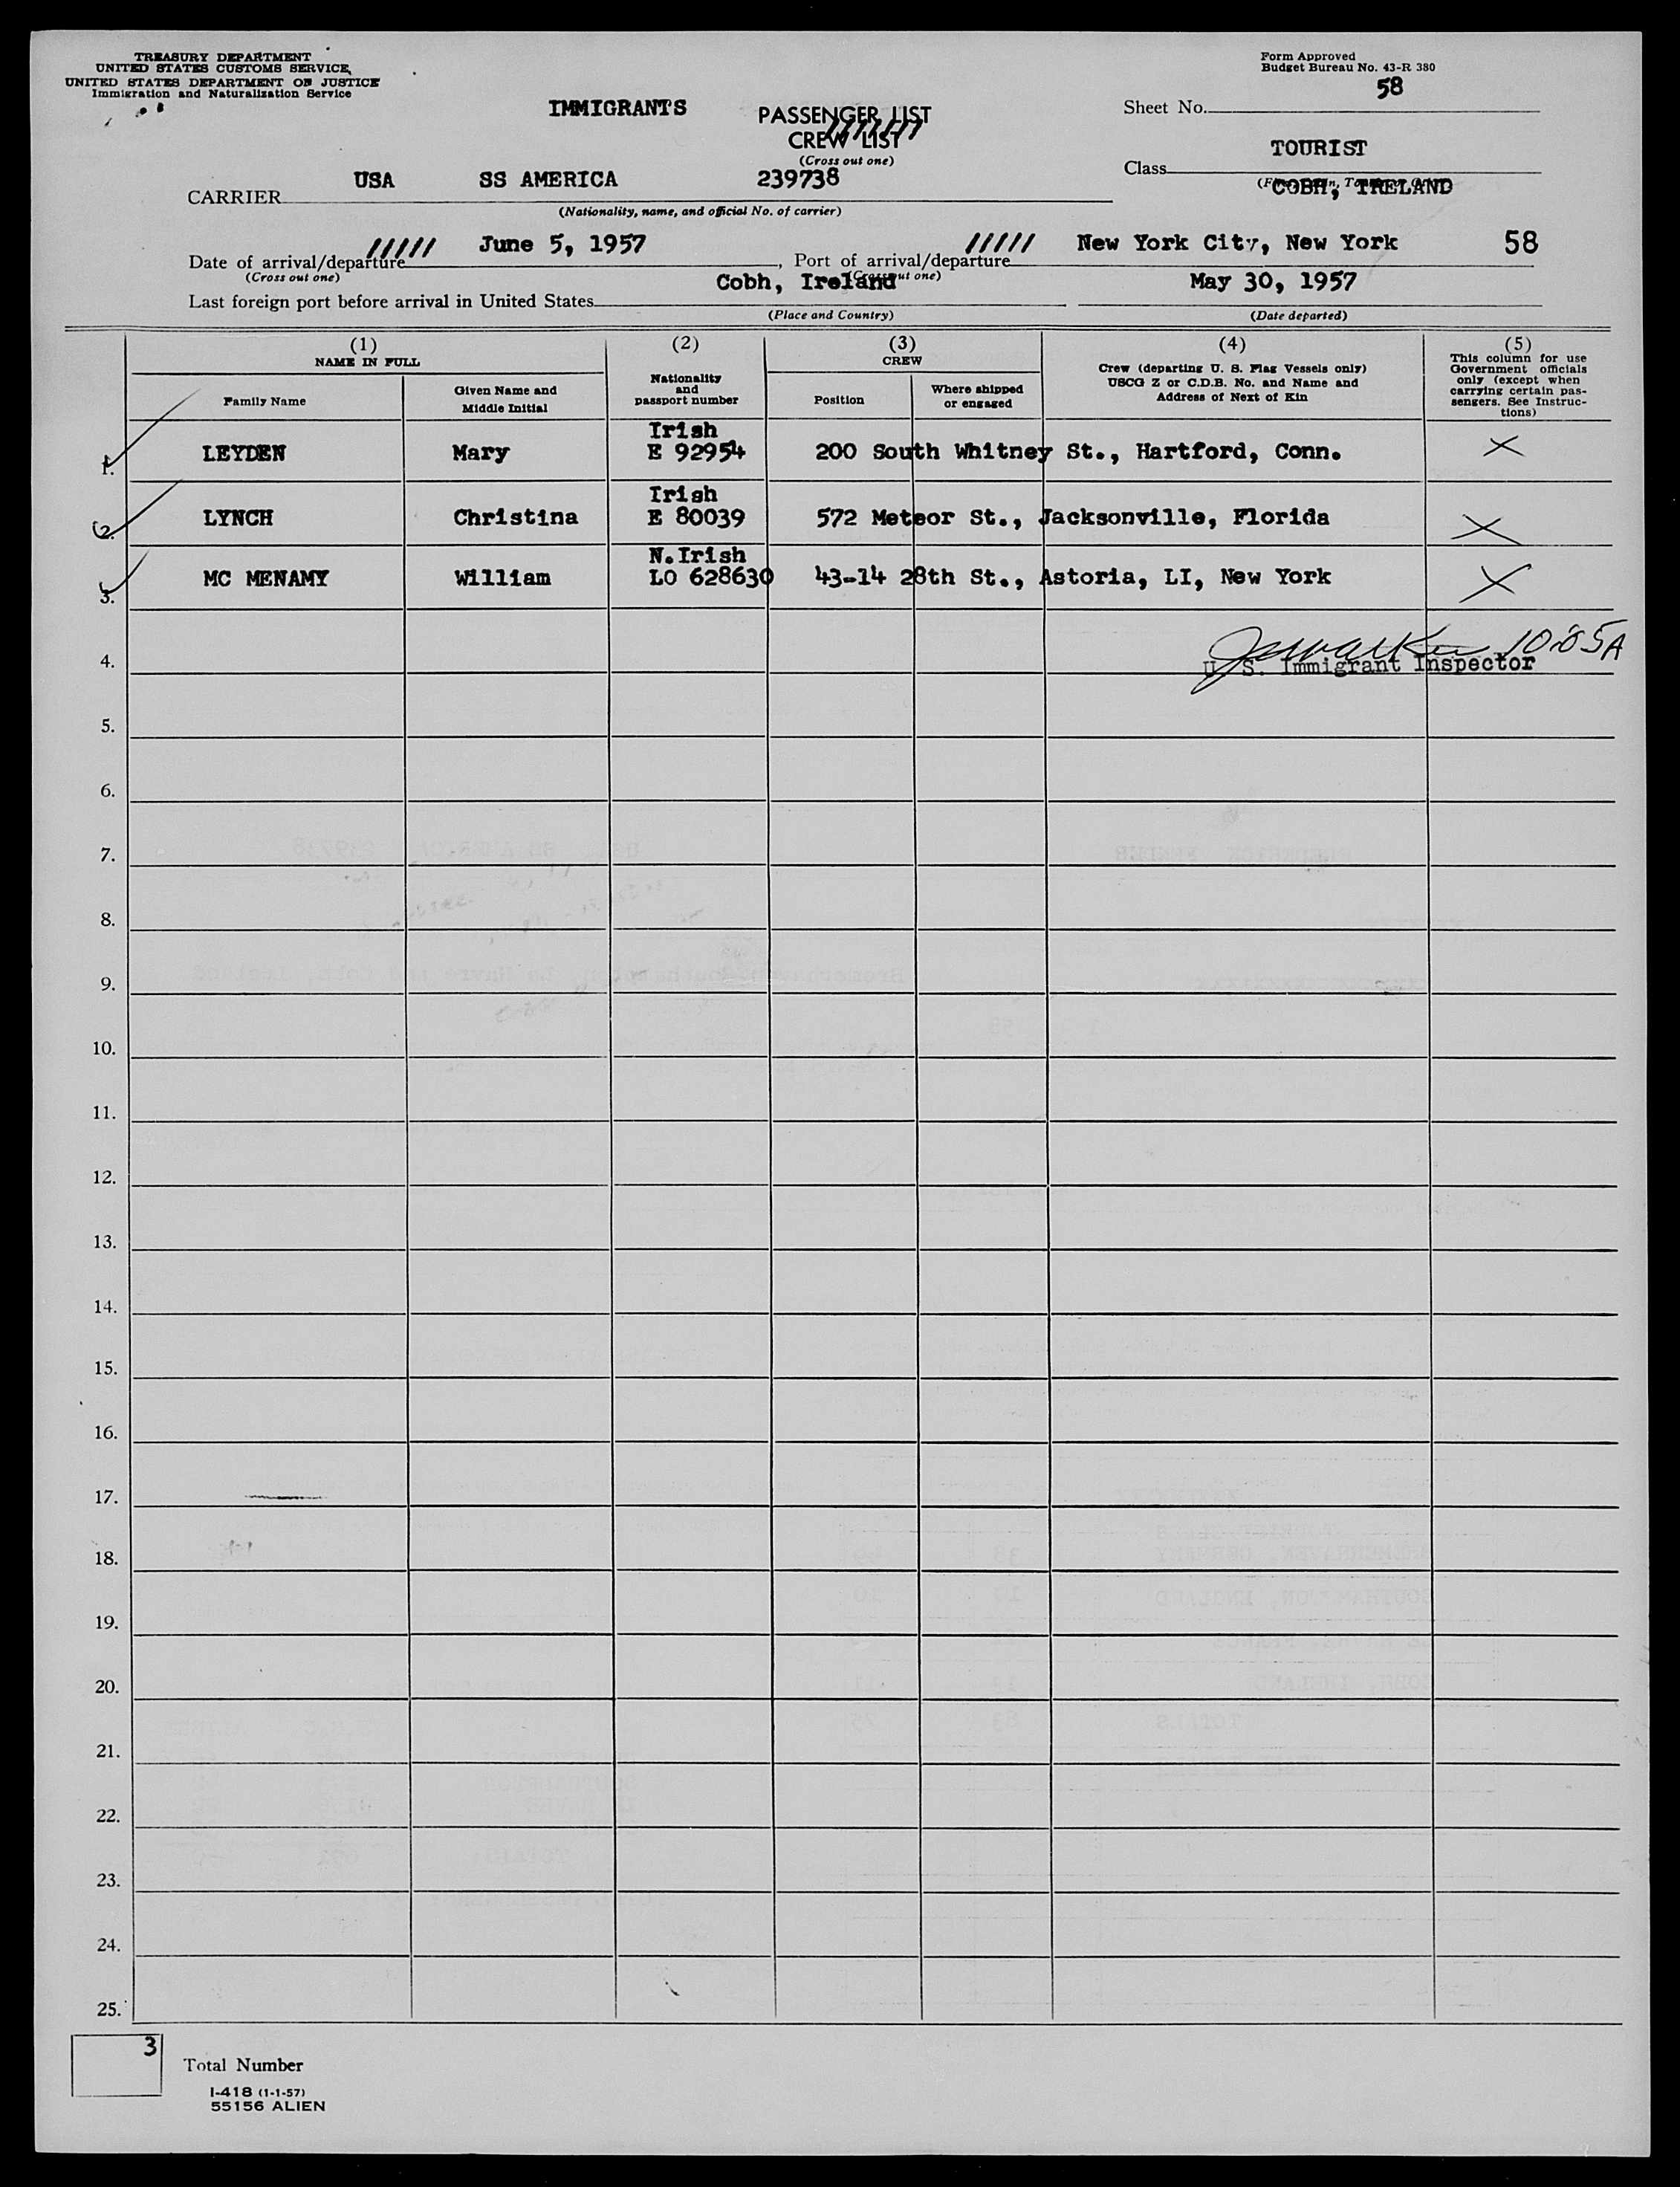 TREASURY DEPARTMENT
UNITED STATES CUSTOMS SERVICE,
UNITED STATES DEPARTMENT OF JUSTICE
Immigration and Naturalization Service
Form Approved
Budget Bureau No. 43-R 380
IMMIGRANTS
PASSENGER LIST
CREW LIST
(Cross out one)
Sheet No. 58
Class TOURIST
COBH, IRELAND
CARRIER USA SS AMERICA 239738
(Nationality, name, and official No. of carrier)
Date of arrival/departure June 5, 1957, Port of arrival/departure New York City, New York 58
(Cross out one) (Cross out one)
Last foreign port before arrival in United States Cobh, Ireland May 30, 1957
(Place and Country) (Date departed)
(1) NAME IN FULL
Family Name
Given Name and Middle Initial
(2)
Nationality and passport number
(3) CREW
Position
Where shipped or engaged
(4)
Crew (departing U. S. Flag Vessels only)
USCG Z or C.D.B. No. and Name and
Address of Next of Kin
(5)
This column for use
Government officials
only (except when
carrying certain pas-
sengers. See Instruc-
tions)
Irish
1. LEYDEN Mary E 92954 200 South Whitney St., Hartford, Conn. X
Irish
2. LYNCH Christina E 80039 572 Meteor St., Jacksonville, Florida X
N.Irish
3. MC MENAMY William LO 628630 43-14 28th St., Astoria, LI, New York X
10:05A
4. U. S. Immigrant Inspector
5.
6.
7.
8.
9.
10.
11.
12.
13.
14.
15.
16.
17.
18.
19.
20.
21.
22.
23.
24.
25.
3
Total Number
I-418 (1-1-57)
55156 ALIEN